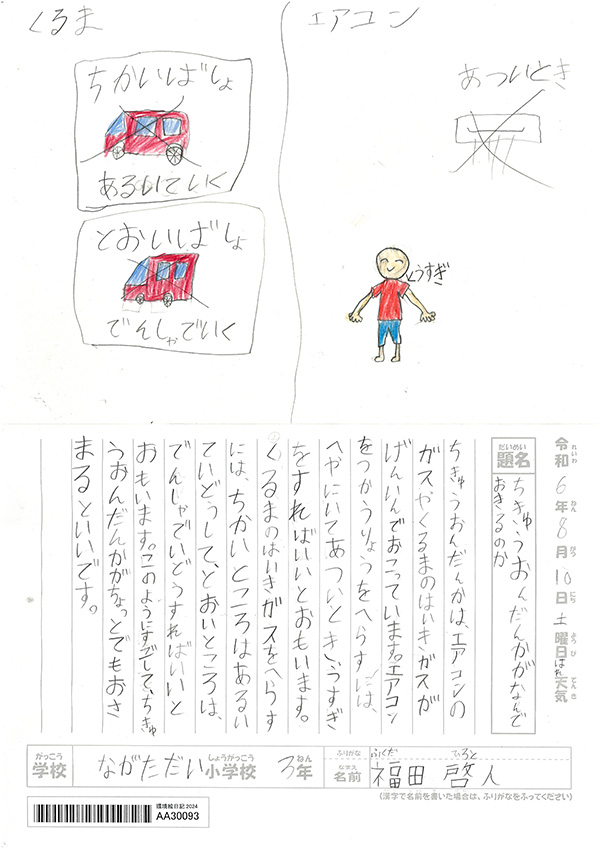 くるま
ちかいばしょ
あるいていく
とおいばしょ
でんしゃでいく
エアコン
あついとき
うすぎ
令和6年8月10日土曜日はれ天気
れいわ ねん がつ にち ようび てんき
だいめい
題名
ちきゅうおんだんかがなんで
おきるのか
ちきゅうおんだんかは、エアコンの
ガスやくるまのはいきガスが
げんいんでおこっています。エアコン
をつかうりょうをへらすには、
へやにいてあついとき、うすぎ
をすればいいとおもいます。
くるまのはいきガスをへらす
には、ちかいところはあるい
ていどうして、とおいところは、
でんしゃでいどうすればいいと
おもいます。このようにすごして、ちきゅ
うおんだんかがちょっとでもおさ
まるといいです。
がっこう しょうがっこう ねん
学校 ながただい小学校 3年
ふりがな ふくだ ひろと
なまえ
名前 福田 啓人
(漢字で名前を書いた場合は、ふりがなをふってください)
環境絵日記2024
AA30093